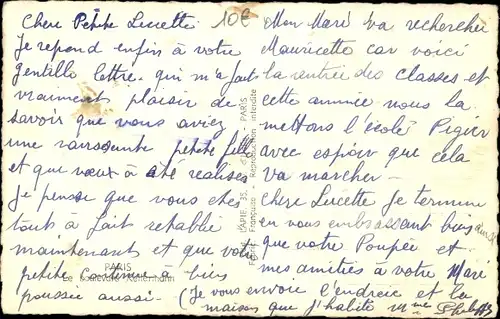 Chere Petite Lucette
Je repond enfin à votre
Gentille lettre. qui m'a fait
vraiment plaisir de
savoir que vous aviez
une ravissante petite fille
et que vœux à été realisés
Je pense que vous etes
tout à fait retablie
maintenant et que votre
petite continue à bien
pousser aussi - (Je vous envoie l'endreie et la
maison que j'habite Mme
10€
Mon Mari va rechercher
Mauricette car voici
la rentrée des classes et
cette année nous la
mettons l'école Pigier
avec espoir que cela
va marcher -
Chere Lucette Je termine
en vous embrassant bien
que votre Poupée et
mes amitiés à votre Mari
PARIS
Le Boulevard Kellermann
LAPIE, 35, PARIS
Fabric. Française - Reproduction interdite